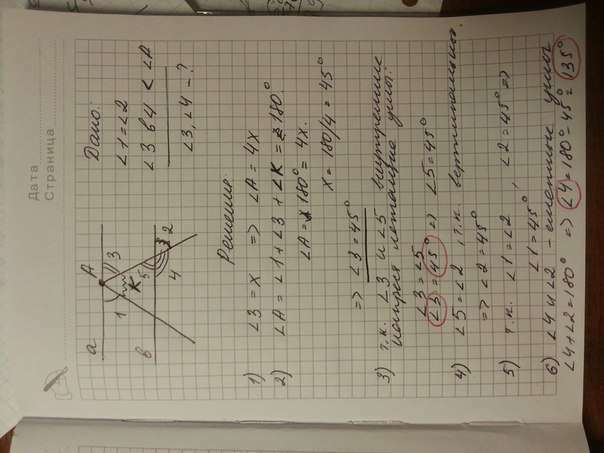 Дата
Страница
a
A
1
3
K
5
3
2
в
4
Дано:
∠1 = ∠2
∠3 в 4 < ∠A
∠3, ∠4 - ?
Решение
1) ∠3 = x => ∠A = 4x
2) ∠A = ∠1 + ∠3 + ∠K = 180°
∠A = 180° = 4x.
x = 180/4 = 45°
=> ∠3 = 45°
3) т.к. ∠3 и ∠5 внутренние
накрест лежащие углы:
∠3 = ∠5
∠3 = 45° => ∠5 = 45°
4) ∠5 = ∠2, т.к. вертикальные.
=> ∠2 = 45°
5) т.к. ∠1 = ∠2, ∠2 = 45° =>
∠1 = 45°
6) ∠4 и ∠2 - смежные углы
∠4 + ∠2 = 180° => ∠4 = 180° - 45° = 135°